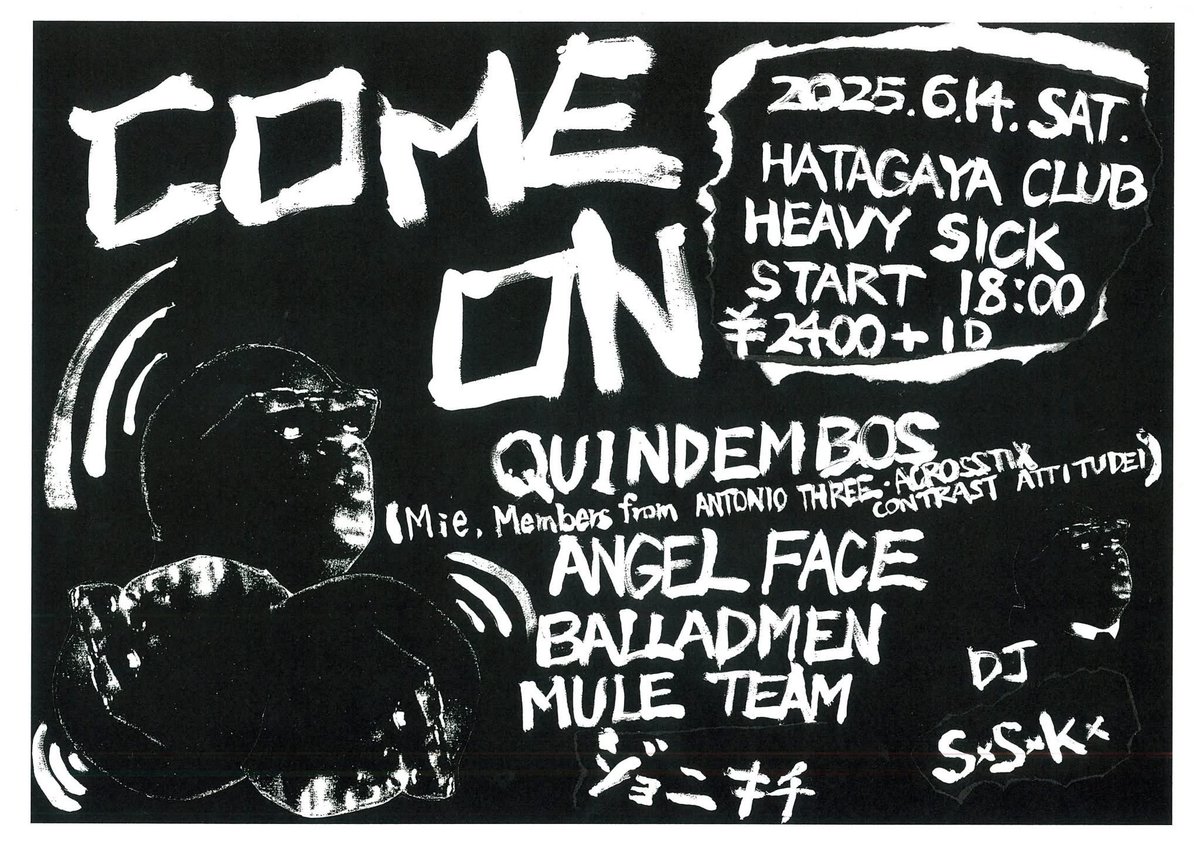 COME
ON
2025.6.14.SAT.
HATAGAYA CLUB
HEAVY SICK
START 18:00
¥2400+1D
QUINDEMBOS
(Mie, Members from ANTONIO THREE・ACROSSTIX
CONTRAST ATTITUDE!)
ANGEL FACE
BALLADMEN
MULE TEAM
ジョニー
DJ
S×S×K×